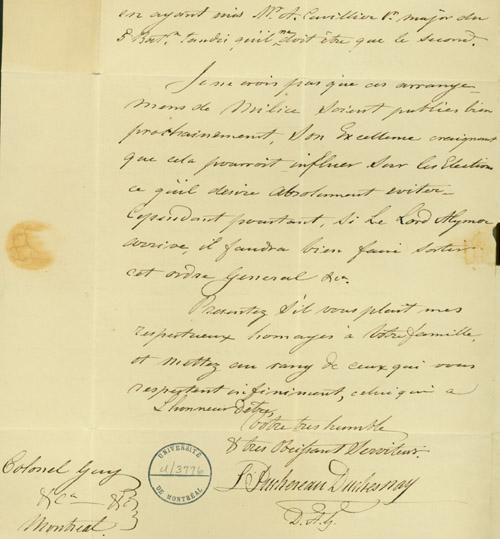 en ayant mis Mr. A. Cuvillier 1r. major du
5 Batn. tandis qu'il ne doit être que le second.
Je ne crois pas que ces arrange-
mens de Milice soient publies bien
prochainement, Son Excellence craignant
que cela pourroit influer sur les Election
ce qu'il desire absolument eviter-
Cependant pourtant, si Le Lord Alymer
arrive, il faudra bien faire sortir
cet ordre General &ca.
Presentez S'il vous plait mes
respectueux homages à Votre famille,
et mettez au rang de ceux qui vous
respectent infiniment, celui qui a
L'honneur d'etre
Votre tres humble
& tres Obeissant Serviteur.
Colonel Guy
&ca &c
Montréal.
UNIVERSITÉ
U/3776
DE MONTRÉAL
Juchereau Duchesnay
D.A.G.